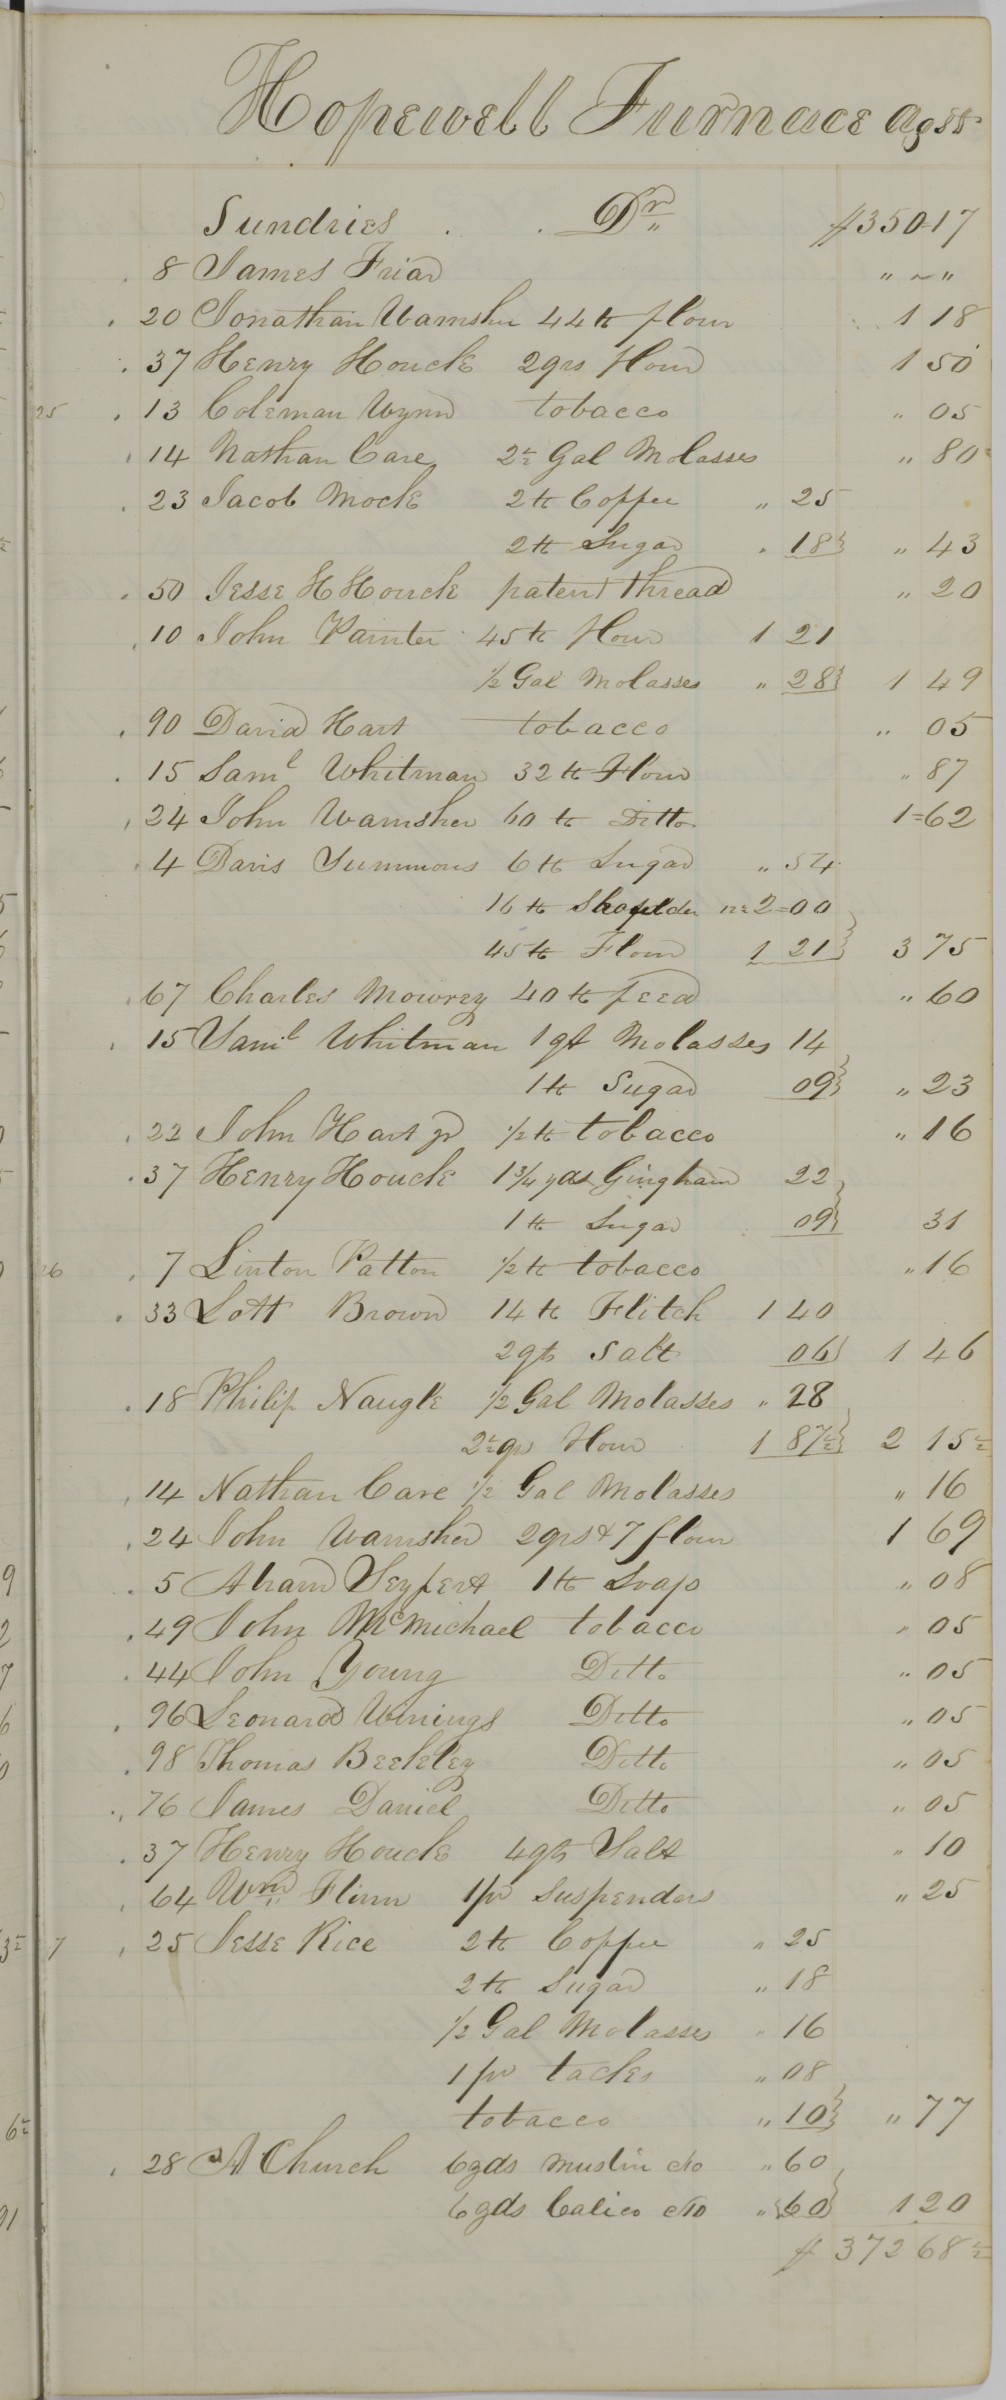 Hopewell Furnace Agst
Sundries . . Dr $350 17
8 James Friad " ~ "
20 Jonathan Wamsher 44 lb flour 1 18
37 Henry Houck 2 qrs flour 1 50
25 13 Coleman Wynn tobacco " 05
14 Nathan Care 2½ Gal Molasses " 80
23 Jacob Mock 2 lb Coffee " 25
2 lb Sugar " 18 " 43
50 Jesse H Houck patent thread " 20
10 John Painter 45 lb flour 1 21
1/2 Gal Molasses " 28 1 49
90 David Hart tobacco " 05
15 Saml Whitman 32 lb Flour " 87
24 John Wamsher 60 lb Ditto 1=62
4 Davis Summons 6 lb Sugar " 54
16 lb Shoulder 12½ 2=00
45 lb Flour 1 21 3 75
67 Charles Mowrey 40 lb feed " 60
15 Saml Whitman 1 qt Molasses 14
1 lb Sugar 09 " 23
22 John Hart jr 1/2 lb tobacco " 16
37 Henry Houck 1 3/4 yds Gingham 22
1 lb Sugar 09 31
26 7 Linton Patton 1/2 lb tobacco " 16
33 Lott Brown 14 lb Flitch 1 40
2 qts Salt 06 1 46
18 Philip Naugle 1/2 Gal Molasses " 28
2½ qrs Flour 1 87½ 2 15½
14 Nathan Care 1/2 Gal Molasses " 16
24 John Wamsher 2 qrs & 7 flour 1 69
5 Abram Seyfert 1 lb Soap " 08
49 John McMichael tobacco " 05
44 John Young Ditto " 05
96 Leonard Winings Ditto " 05
98 Thomas Beekley Ditto " 05
76 James Daniel Ditto " 05
37 Henry Houck 4 qts Salt " 10
64 Wm Flinn 1 pr Suspenders " 25
7 25 Jesse Rice 2 lb Coffee " 25
2 lb Sugar " 18
1/2 Gal Molasses " 16
1 pr tacks " 08
tobacco " 10 " 77
28 A Church 6 yds muslin c10 " 60
6 yds Calico c10 " 60 1 20
$ 372 68½